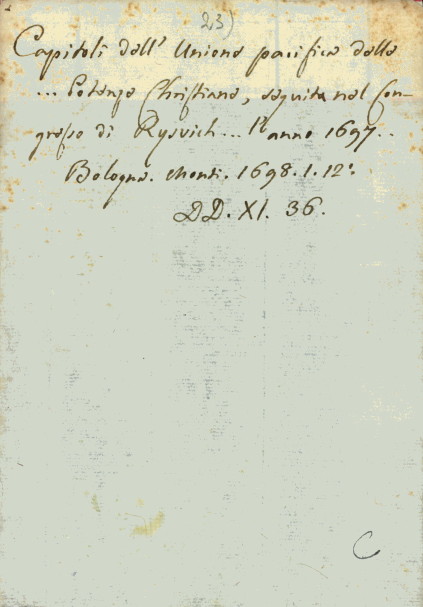 23)
Capitoli dell' Unione pacifica delle
... Potenze Christiane, seguita nel Con-
gresso di Rysvich... l'anno 1697..
Bologna. Monti. 1698. 1. 12°.
DD. XI. 36.
C